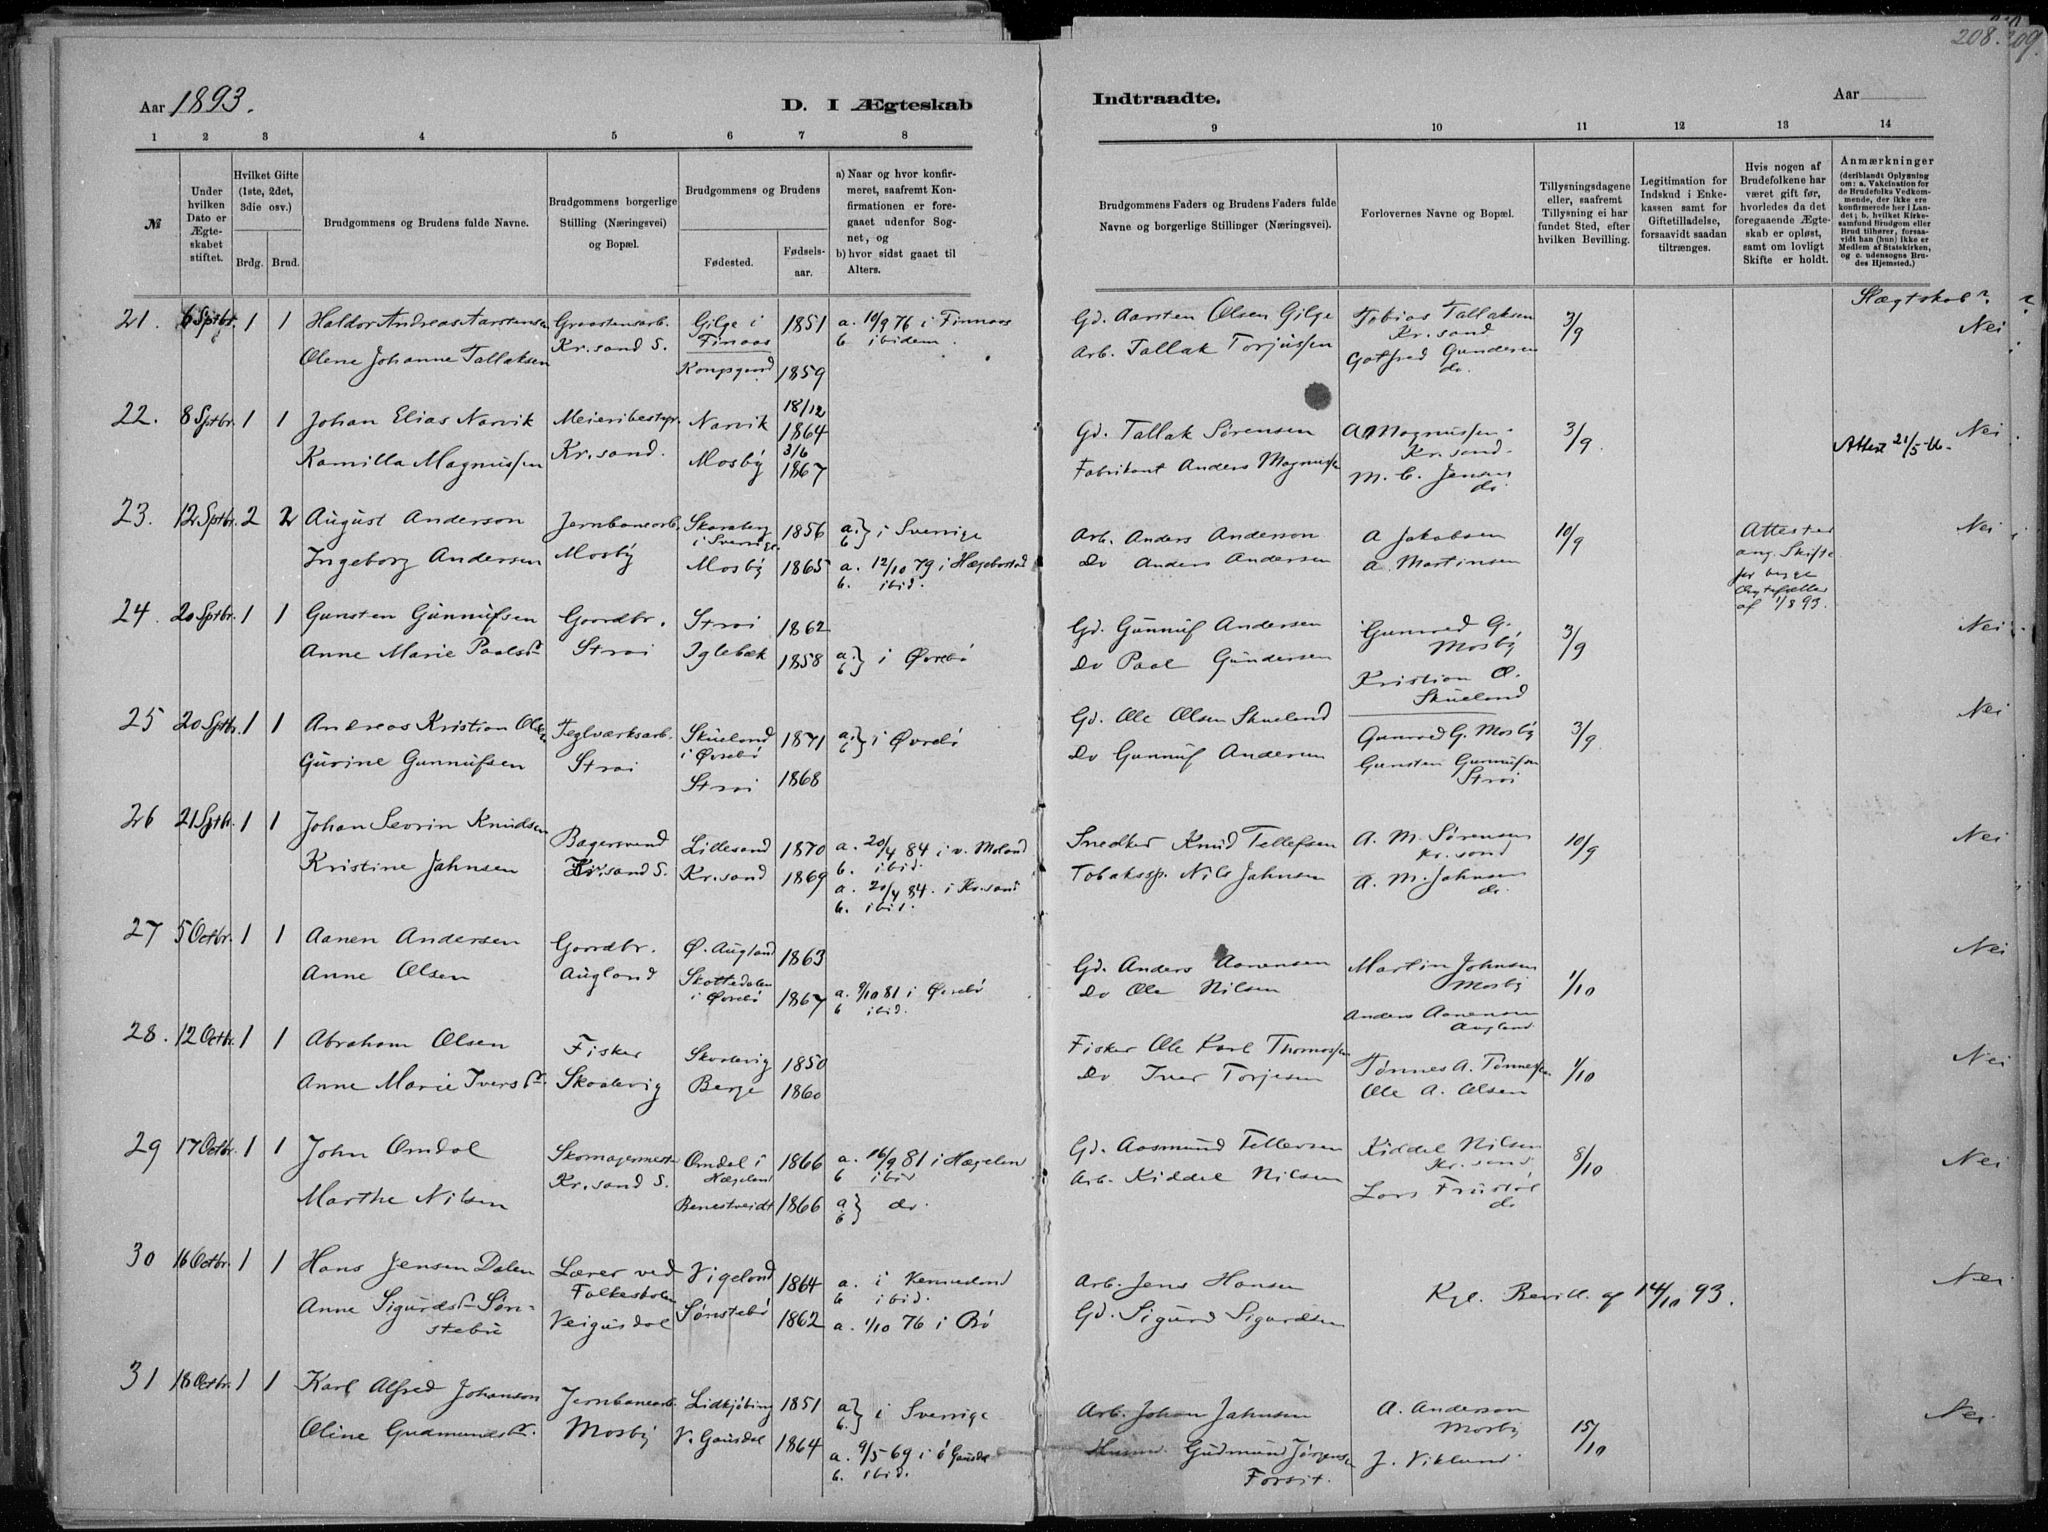 208. 209.
Aar 1893.
D. I Ægteskab
Indtraadte.
Aar
1 2 3 4 5 6 7 8
9 10 11 12 13 14
№
Under hvilken Dato er Ægteskabet stiftet.
Hvilket Gifte (1ste, 2det, 3die osv.)
Brdg. Brud.
Brudgommens og Brudens fulde Navne.
Brudgommens borgerlige Stilling (Næringsvei) og Bopæl.
Brudgommens og Brudens
Fødested.
Fødsels-aar.
a) Naar og hvor konfirmeret, saafremt Konfirmationen er foregaaet udenfor Sognet, og
b) hvor sidst gaaet til Alters.
Brudgommens Faders og Brudens Faders fulde Navne og borgerlige Stillinger (Næringsvei).
Forlovernes Navne og Bopæl.
Tillysningsdagene eller, saafremt Tillysning ei har fundet Sted, efter hvilken Bevilling.
Legitimation for Indskud i Enkekassen samt for Giftetilladelse, forsaavidt saadan tiltrænges.
Hvis nogen af Brudefolkene har været gift før, hvorledes da det foregaaende Ægteskab er opløst, samt om lovligt Skifte er holdt.
Anmærkninger
(deriblandt Oplysning om: a. Vakcination for de Brudefolks Vedkommende, der ikke ere konfirmerede her i Landet; b. hvilket Kirkesamfund Brudgom eller Brud tilhører, forsaavidt han (hun) ikke er Medlem af Statskirken, og c. udensogns Brudes Hjemsted.)
Slægtskab?
21. 6 Sptbr. 1 1 Haldor Andreas Aarstensen Graastensarb. Gilge i Finaas 1851 a. 10/9 76 i Finnaas
Olene Johanne Tallaksen Kr.sand S. Kongsgaard 1859 b. ibidem.
Gd. Aarsten Olsen Gilge Tobias Tallaksen Kr.sand 3/9 Nei
Arb. Tallak Torjussen Gotfred Gundersen do.
22. 8 Sptbr. 1 1 Johan Elias Narvik Meieribestyr. Narvik 18/12 1864
Kamilla Magnussen Kr.sand. Mosby 3/6 1867
Gd. Tallak Sørensen A Magnussen Kr.sand 3/9. Nei
Fabrikant Anders Magnussen M. C. Jensen do. Attest 21/5-
23. 12 Sptbr. 2 2 August Anderson Jernbanearb. Skaraborg i Sverrige 1856 a. b. } i Sverrige
Ingeborg Andersen Mosby Mosby 1865 a. 12/10 79 i Hægebostad b. ibid.
Arb. Anders Anderson A Jakobsen 10/9 Attester ang. Skifte for begge Ægtefæller af 1/8 93. Nei
Do Anders Andersen A. Martinsen
24. 20 Sptbr. 1 1 Gunsten Gunnufsen Gaardbr. Strai 1862
Anne Marie Paalsd. Strai Iglebæk 1858 a. b } i Øvrebø
Gd. Gunnuf Andersen Gunvald G. Mosby 3/9 Nei
Do Paal Gundersen Kristian O. Skueland
25 20 Sptbr. 1 1 Andreas Kristian Olsen Teglværksarb. Skueland i Øvrebø 1871 a. b } i Øvrebø
Gurine Gunnufsen Strai Strai 1868
Gd. Ole Olsen Skueland Gunvald G. Mosby 3/9. Nei
Do Gunnuf Andersen Gunsten Gunnufsen Strai
26 21 Sptbr. 1 1 Johan Severin Knudsen Bagersvend Lillesand 1870 a. 20/4 84 i v. Moland b. ibid.
Kristine Jahnsen Kr.sand S. Kr.sand 1869 a. 20/4 84. i Kr.sand b. ibid.
Snedker Knud Tellefsen A. M. Sørensen Kr.sand 10/9 Nei
Tobaksp. Nils Jahnsen A. M. Jahnsen do.
27 5 Octbr. 1 1 Aanen Andersen Gaardbr. Ø. Augland 1863
Anne Olsen Augland Skottedalen i Øvrebø 1867 a. 9/10 81 i Øvrebø b ibid.
Gd. Anders Aanensen Martin Johnsen Mosby 1/10 Nei
Do Ole Nilsen Anders Aanensen Augland
28. 12 Octbr. 1 1 Abraham Olsen Fisker Skaalevig 1850
Anne Marie Iversd. Skaalevig Berge 1860
Fisker Ole Karl Thomassen Tønnes A. Tønnessen 1/10 Nei
Do Iver Torjesen Ole A. Olsen
29 17 Octbr. 1 1 John Omdal Skomagermest Omdal i Hægeland 1866 a. 16/9 81 i Hægelan b ibid
Marthe Nilsen Kr.sand S. Benestveidt 1866 a b } do.
Gd. Aasmund Tellevsen Kiddel Nilsen Kr.sand 8/10 Nei
Arb. Kiddel Nilsen Lars Frustøl do
30 16 Octbr. 1 1 Hans Jensen Dalen Lærer ved Folkeskolen Vigeland 1864 a. i b ibid.
Anne Sigurdsd. Sønstebu Veigusdal Sønstebø 1862 a. 1/10 76 i Bø
Arb. Jens Hansen Kgl. Bevill. af 14/10 93. Nei
Gd. Sigurd Sigurdsen
31 18 Octbr. 1 1 Karl Alfred Johanson Jernbanearb. Lidkjøbing 1851 a b. } i Sverrige
Oline Gudmundsd. Mosby V. Gausdal 1864 a. 9/5-69 i Ø Gausdal b. ibid.
Arb. Johan Jahnsen A. Anderson Mosby 15/10 Nei
Gudmund Jørgensen J. Viklund